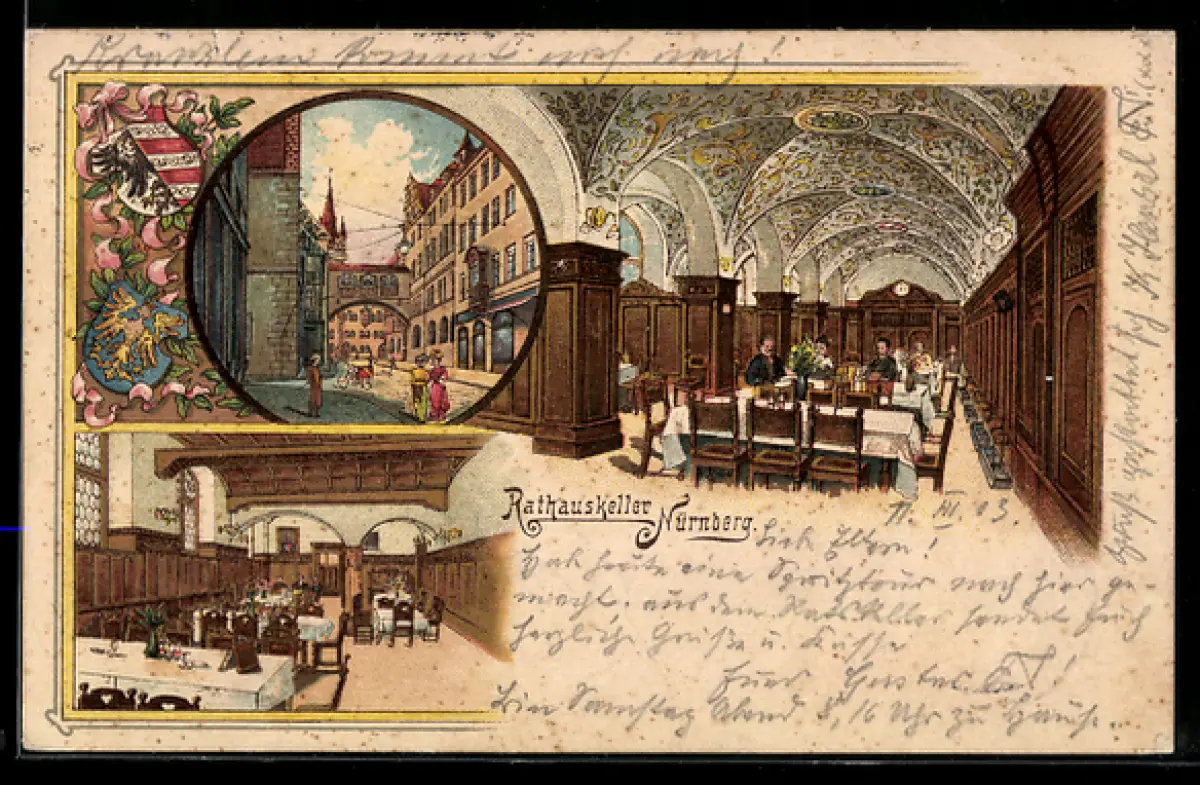 Kränzlein kommt noch nach!
Rathauskeller
Nürnberg.
11. III 03.
Lieb. Eltern!
Hab heute eine Spritztour nach hier ge-
macht. aus dem Ratskeller sendet Euch
herzliche Grüße u. Küsse
Euer
Bin Samstag Abend 8,16 Uhr zu Hause.
Gruß K. Hensel